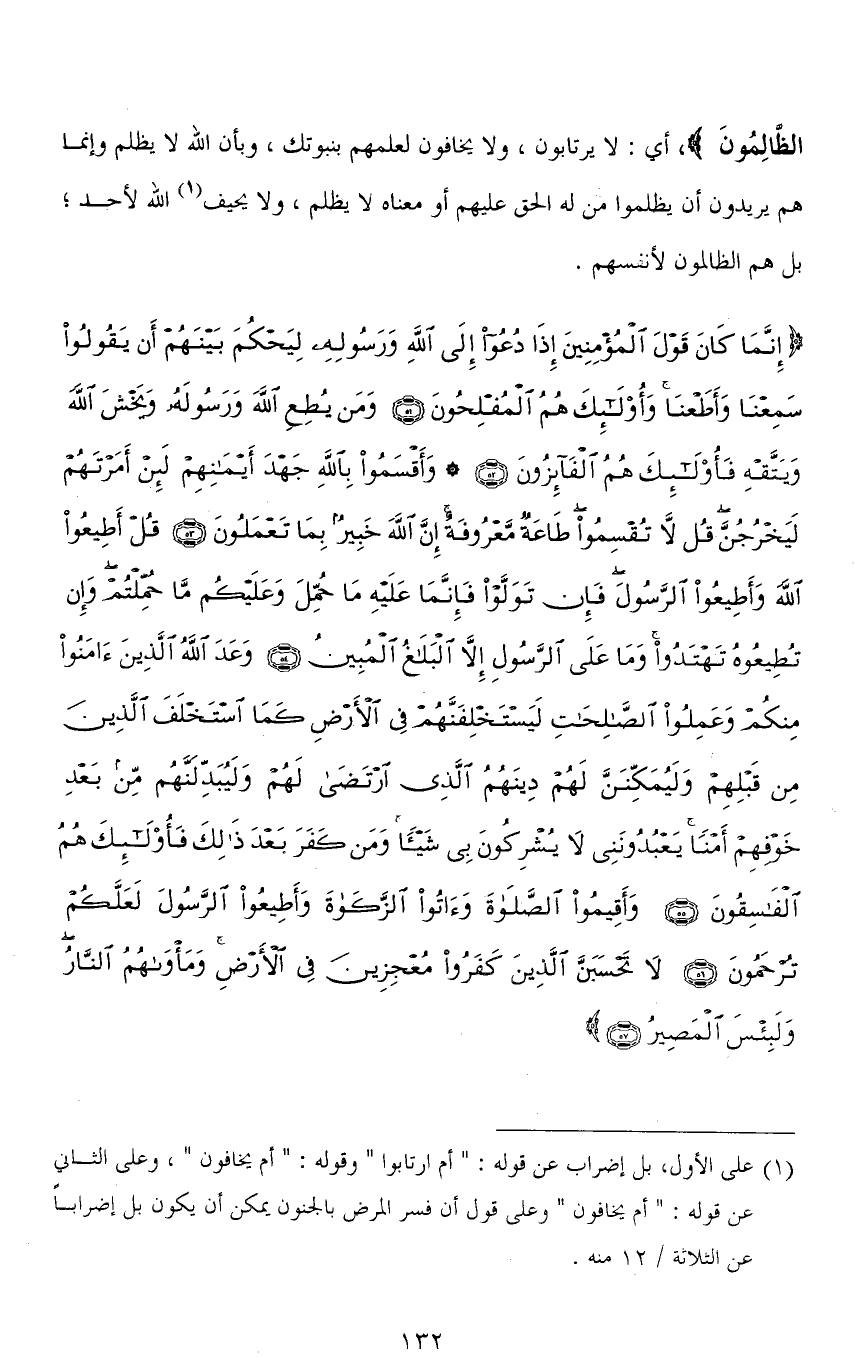 الظَّالِمُونَ ﴾، أي : لا يرتابون ، ولا يخافون لعلمهم بنبوتك ، وبأن الله لا يظلم وإنما
هم يريدون أن يظلموا من له الحق عليهم أو معناه لا يظلم ، ولا يحيف(١) الله لأحد ؛
بل هم الظالمون لأنفسهم .
﴿ إِنَّمَا كَانَ قَوْلَ ٱلْمُؤْمِنِينَ إِذَا دُعُوٓا۟ إِلَى ٱللَّهِ وَرَسُولِهِۦ لِيَحْكُمَ بَيْنَهُمْ أَن يَقُولُوا۟
سَمِعْنَا وَأَطَعْنَا ۚ وَأُو۟لَـٰٓئِكَ هُمُ ٱلْمُفْلِحُونَ ۝٥١ وَمَن يُطِعِ ٱللَّهَ وَرَسُولَهُۥ وَيَخْشَ ٱللَّهَ
وَيَتَّقْهِ فَأُو۟لَـٰٓئِكَ هُمُ ٱلْفَآئِزُونَ ۝٥٢ * وَأَقْسَمُوا۟ بِٱللَّهِ جَهْدَ أَيْمَـٰنِهِمْ لَئِنْ أَمَرْتَهُمْ
لَيَخْرُجُنَّ ۖ قُل لَّا تُقْسِمُوا۟ ۖ طَاعَةٌ مَّعْرُوفَةٌ ۚ إِنَّ ٱللَّهَ خَبِيرٌۢ بِمَا تَعْمَلُونَ ۝٥٣ قُلْ أَطِيعُوا۟
ٱللَّهَ وَأَطِيعُوا۟ ٱلرَّسُولَ ۖ فَإِن تَوَلَّوْا۟ فَإِنَّمَا عَلَيْهِ مَا حُمِّلَ وَعَلَيْكُم مَّا حُمِّلْتُمْ ۖ وَإِن
تُطِيعُوهُ تَهْتَدُوا۟ ۚ وَمَا عَلَى ٱلرَّسُولِ إِلَّا ٱلْبَلَـٰغُ ٱلْمُبِينُ ۝٥٤ وَعَدَ ٱللَّهُ ٱلَّذِينَ ءَامَنُوا۟
مِنكُمْ وَعَمِلُوا۟ ٱلصَّـٰلِحَـٰتِ لَيَسْتَخْلِفَنَّهُمْ فِى ٱلْأَرْضِ كَمَا ٱسْتَخْلَفَ ٱلَّذِينَ
مِن قَبْلِهِمْ وَلَيُمَكِّنَنَّ لَهُمْ دِينَهُمُ ٱلَّذِى ٱرْتَضَىٰ لَهُمْ وَلَيُبَدِّلَنَّهُم مِّنۢ بَعْدِ
خَوْفِهِمْ أَمْنًا ۚ يَعْبُدُونَنِى لَا يُشْرِكُونَ بِى شَيْـًٔا ۚ وَمَن كَفَرَ بَعْدَ ذَٰلِكَ فَأُو۟لَـٰٓئِكَ هُمُ
ٱلْفَـٰسِقُونَ ۝٥٥ وَأَقِيمُوا۟ ٱلصَّلَوٰةَ وَءَاتُوا۟ ٱلزَّكَوٰةَ وَأَطِيعُوا۟ ٱلرَّسُولَ لَعَلَّكُمْ
تُرْحَمُونَ ۝٥٦ لَا تَحْسَبَنَّ ٱلَّذِينَ كَفَرُوا۟ مُعْجِزِينَ فِى ٱلْأَرْضِ ۚ وَمَأْوَىٰهُمُ ٱلنَّارُ ۖ
وَلَبِئْسَ ٱلْمَصِيرُ ۝٥٧ ﴾
(١) على الأول، بل إضراب عن قوله : " أم ارتابوا " وقوله : " أم يخافون " ، وعلى الثاني
عن قوله : " أم يخافون " وعلى قول أن فسر المرض بالجنون يمكن أن يكون بل إضراباً
عن الثلاثة / ١٢ منه .
١٣٢